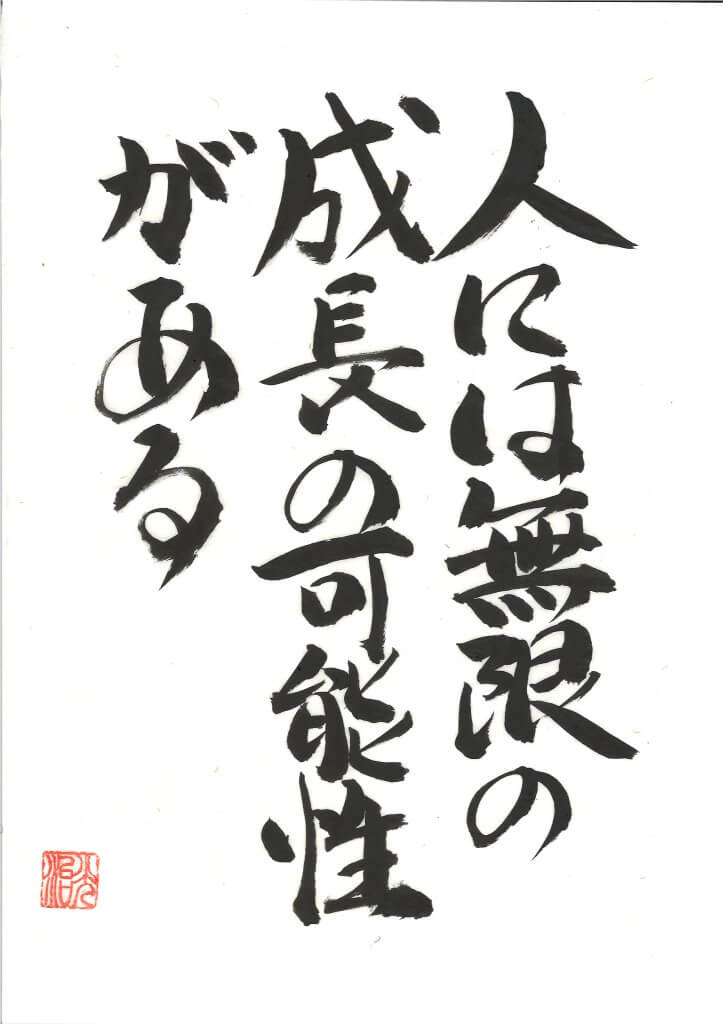 人には無限の
成長の可能性
がある